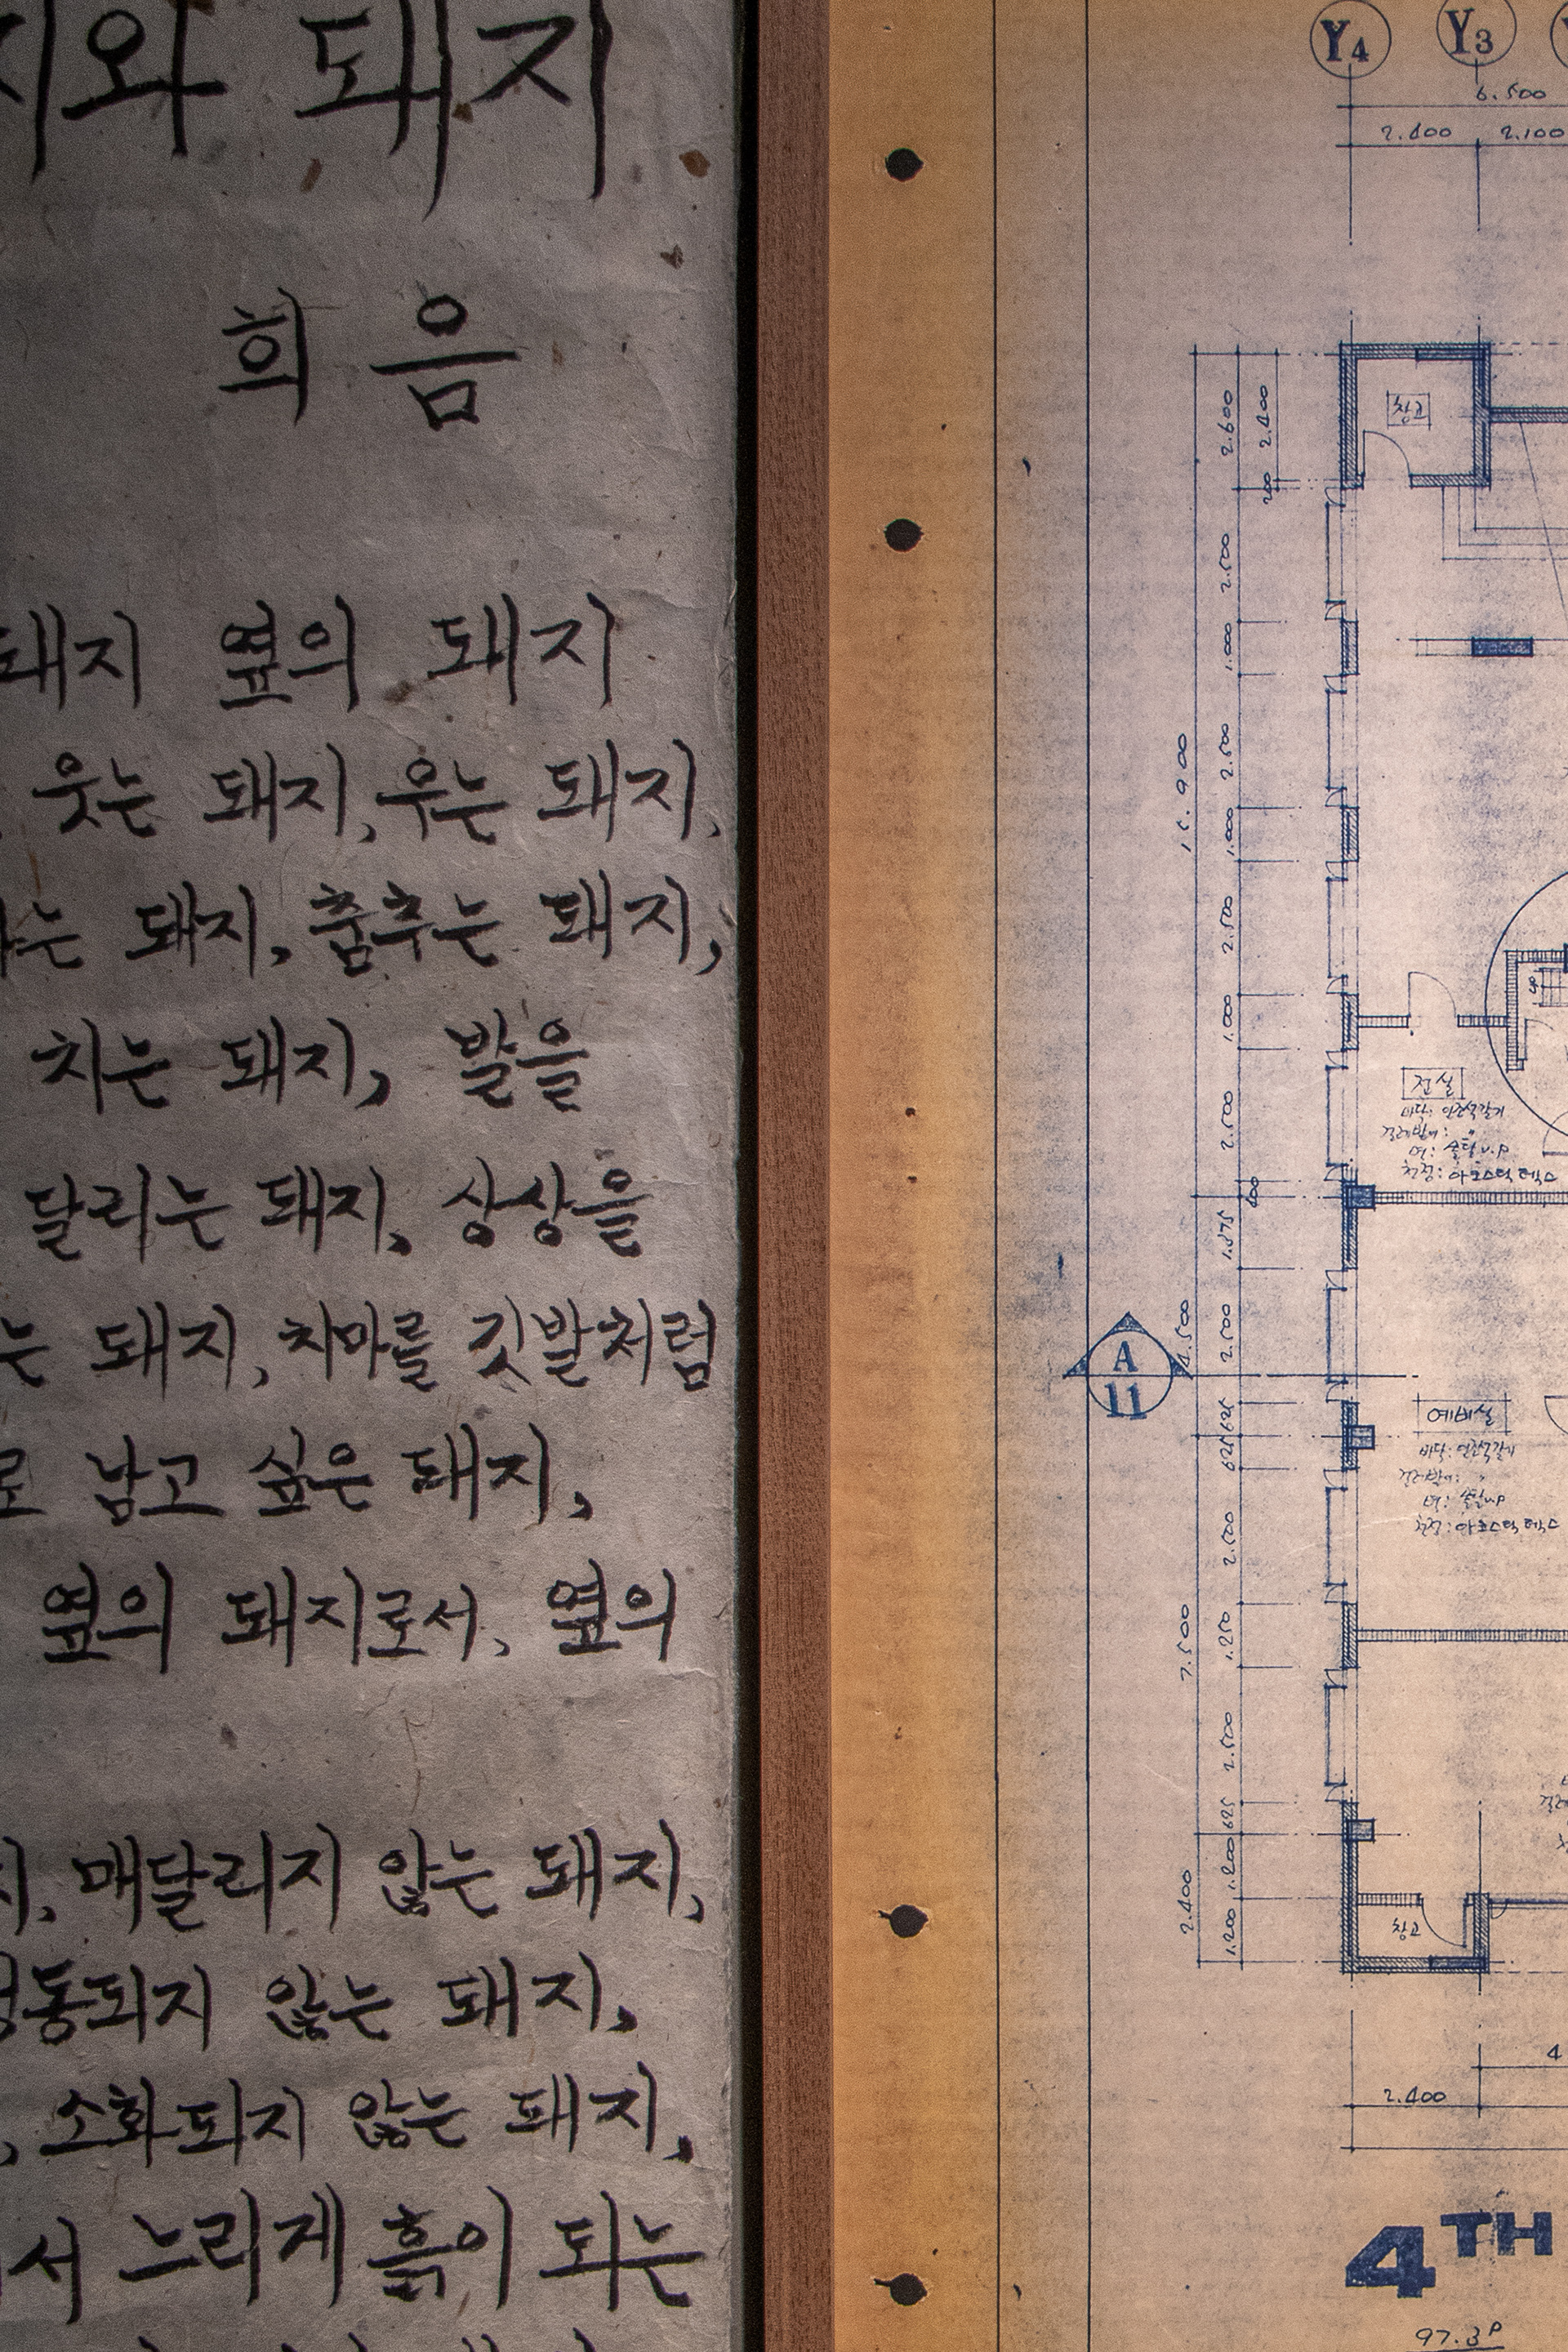 지와 돼지
희음
돼지 옆의 돼지
웃는 돼지, 우는 돼지,
는 돼지, 춤추는 돼지,
치는 돼지, 발을
달리는 돼지, 상상을
는 돼지, 치마를 깃발처럼
로 남고 싶은 돼지,
옆의 돼지로서, 옆의
지, 매달리지 않는 돼지,
동되지 않는 돼지,
, 소화되지 않는 돼지,
서 느리게 흙이 되는
Y4 Y3
6.500
2.400 2.100
창고
2.600
2.400
200
2.500
1.000
2.500
1.000
2.500
1.000
2.500
600
1.875
2.500
625
625
2.500
1.250
2.500
625
1.200
1.200
16.900
4.500
7.500
2.400
전실
바닥: 인조석갈기
걸레받이: "
벽: 솔탑 V.P
천정: 아코스틱 텍스
A
11
예비실
바닥: 인조석갈기
걸레받이: "
벽: 솔탑 V.P
천정: 아코스틱 텍스
창고
4
2.400
4TH
97.3P